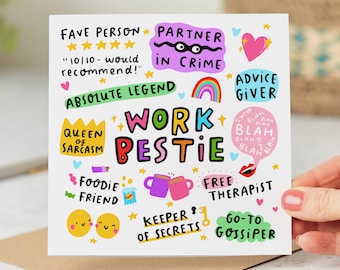 FAVE PERSON
"10/10 - would
recommend!"
PARTNER
IN CRIME
ADVICE
GIVER
ABSOLUTE LEGEND
WORK
BESTIE
QUEEN
OF
SARCASM
BLAH
BLAH
BLAH
BLAH
BLAH
BLAH
FOODIE
FRIEND
FREE
THERAPIST
KEEPER
OF SECRETS
GO-TO
GOSSIPER